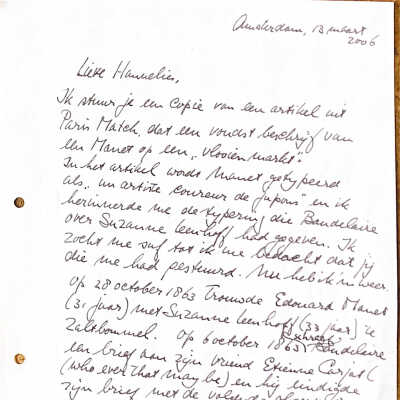 Amsterdam, 13 maart
2006
Lieve Hannelies,
Ik stuur je een copie van een artikel uit
Paris Match, dat een vondst beschrijf van
een Manet op een "vlooienmarkt".
In het artikel wordt Manet getypeerd
als "un artiste coureur de jupons" en ik
herinnerde me de typering die Baudelaire
over Suzanne Leenhoff had gegeven. Ik
zocht me suf tot ik me bedacht dat jij
die me had gestuurd. Nu heb ik 'm weer.
Op 28 october 1863 trouwde Edouard Manet
(31 jaar) met Suzanne Leenhoff (33 jaar) te
Zaltbommel. Op 6 october 1863 schrijft Baudelaire
een brief aan zijn vriend Etienne Carjat (
(who ever that may be) en hij eindigde
zijn brief met de